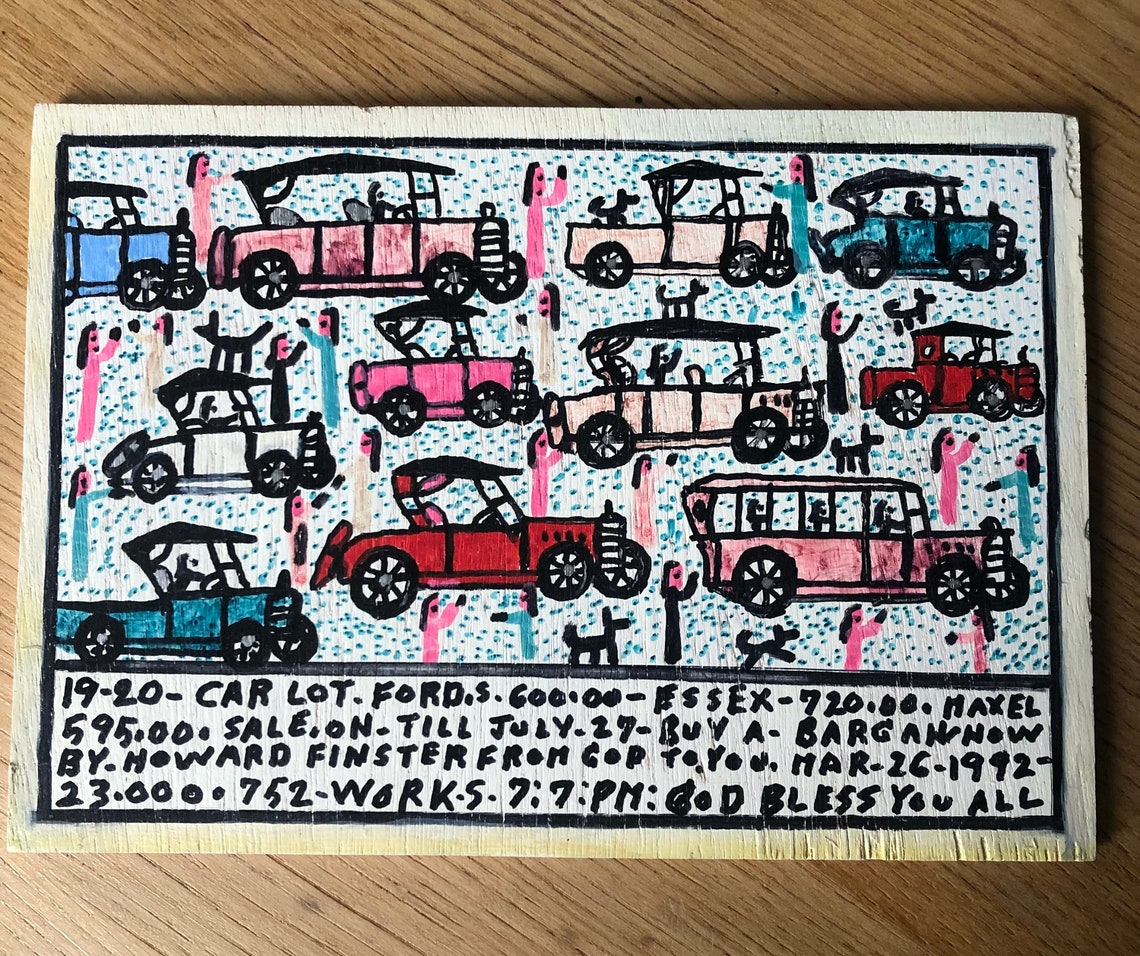 19-20- CAR LOT. FORD.S. 600.00- ESSEX-720.00. MAXEL
595.00. SALE.ON- TILL JULY.27- BUY A- BARGAN NOW
BY-HOWARD FINSTER FROM GOD TO YOU. MAR-26-1992-
23.000. 752-WORK.S. 7:7:PM: GOD BLESS YOU ALL